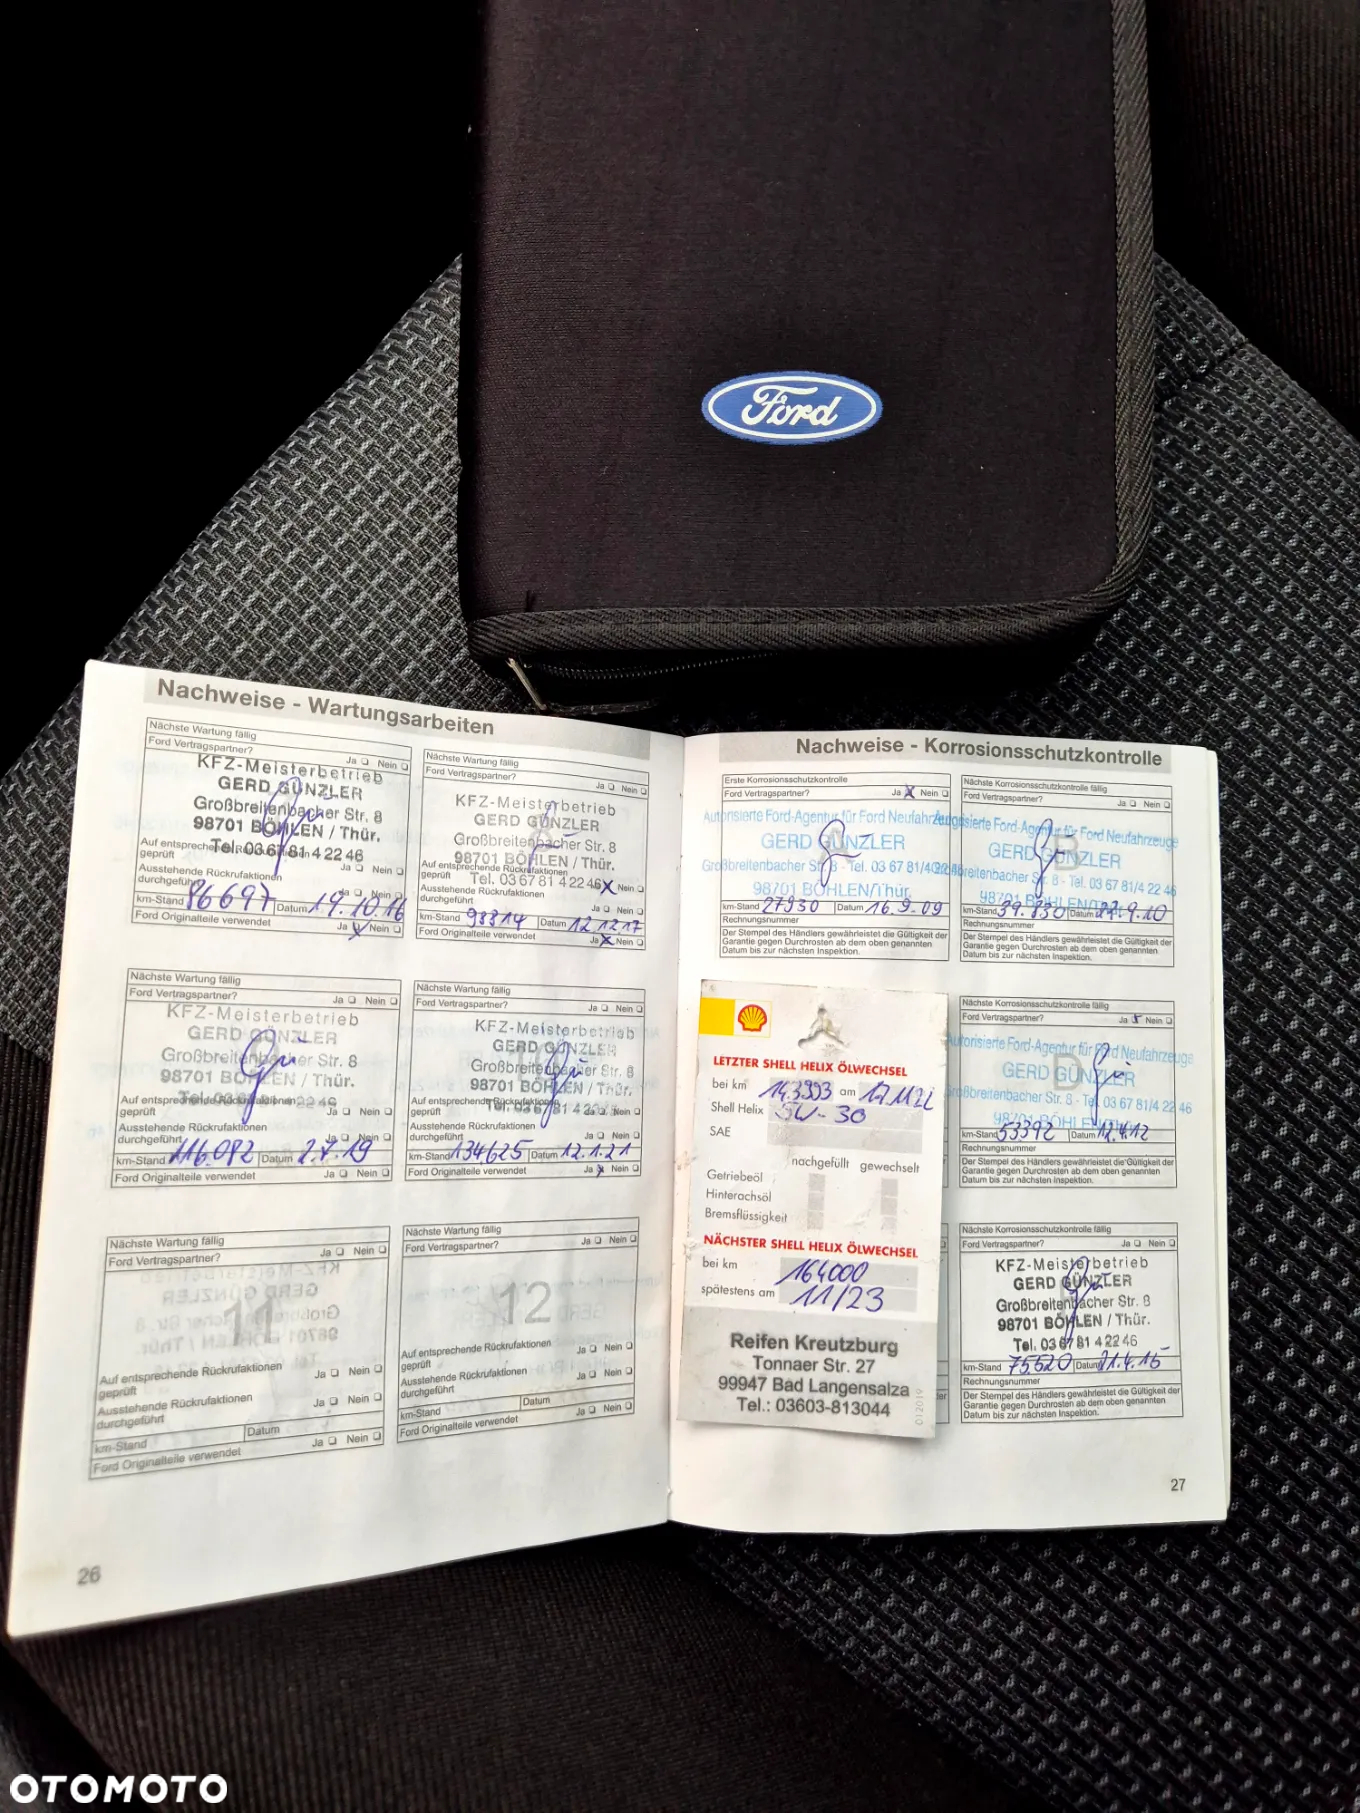 Ford
Nachweise - Wartungsarbeiten
Nächste Wartung fällig
Ford Vertragspartner?
Ja Nein
KFZ-Meisterbetrieb
GERD GÜNZLER
Großbreitenbacher Str. 8
98701 BÖHLEN / Thür.
Tel. 03 67 81 4 22 46
Auf entsprechende Rückrufaktionen
geprüft Ja Nein
Ausstehende Rückrufaktionen
durchgeführt Ja Nein
km-Stand 86697 Datum 19.10.16
Ford Originalteile verwendet Ja Nein
Nächste Wartung fällig
Ford Vertragspartner?
Ja Nein
KFZ-Meisterbetrieb
GERD GÜNZLER
Großbreitenbacher Str. 8
98701 BÖHLEN / Thür.
Auf entsprechende Rückrufaktionen
geprüft Tel. 03 67 81 4 22 46 Nein
Ausstehende Rückrufaktionen
durchgeführt Ja Nein
km-Stand 98814 Datum 12.12.17
Ford Originalteile verwendet Ja Nein
Nächste Wartung fällig
Ford Vertragspartner? Ja Nein
KFZ-Meisterbetrieb
GERD GÜNZLER
Großbreitenbacher Str. 8
98701 BÖHLEN / Thür.
Auf entsprechende Rückrufaktionen
geprüft Ja Nein
Ausstehende Rückrufaktionen
durchgeführt Ja Nein
km-Stand 116.082 Datum 2.7.19
Ford Originalteile verwendet Ja Nein
Nächste Wartung fällig
Ford Vertragspartner? Ja Nein
KFZ-Meisterbetrieb
GERD GÜNZLER
Großbreitenbacher Str. 8
98701 BÖHLEN / Thür.
Auf entsprechende Rückrufaktionen
geprüft Ja Nein
Ausstehende Rückrufaktionen
durchgeführt Ja Nein
km-Stand 134625 Datum 12.1.21
Ford Originalteile verwendet Ja Nein
Nächste Wartung fällig
Ford Vertragspartner? Ja Nein
11
Auf entsprechende Rückrufaktionen
geprüft Ja Nein
Ausstehende Rückrufaktionen
durchgeführt Ja Nein
km-Stand Datum
Ford Originalteile verwendet Ja Nein
Nächste Wartung fällig
Ford Vertragspartner? Ja Nein
12
Auf entsprechende Rückrufaktionen
geprüft Ja Nein
Ausstehende Rückrufaktionen
durchgeführt Ja Nein
km-Stand Datum
Ford Originalteile verwendet Ja Nein
26
Nachweise - Korrosionsschutzkontrolle
Erste Korrosionsschutzkontrolle
Ford Vertragspartner? Ja Nein
Autorisierte Ford-Agentur für Ford Neufahrzeuge
GERD GÜNZLER
Großbreitenbacher Str. 8 - Tel. 03 67 81/4 22 46
98701 BÖHLEN/Thür.
km-Stand 27930 Datum 16.9.09
Rechnungsnummer
Der Stempel des Händlers gewährleistet die Gültigkeit der
Garantie gegen Durchrosten ab dem oben genannten
Datum bis zur nächsten Inspektion.
Nächste Korrosionsschutzkontrolle fällig
Ford Vertragspartner?
Ja Nein
Autorisierte Ford-Agentur für Ford Neufahrzeuge
B
GERD GÜNZLER
Großbreitenbacher Str. 8 - Tel. 03 67 81/4 22 46
98701 BÖHLEN
km-Stand 39.830 Datum 27.9.10
Rechnungsnummer
Der Stempel des Händlers gewährleistet die Gültigkeit der
Garantie gegen Durchrosten ab dem oben genannten
Datum bis zur nächsten Inspektion.
LETZTER SHELL HELIX ÖLWECHSEL
bei km 143993 am 17.11.22
Shell Helix 5W-30
SAE
nachgefüllt gewechselt
Getriebeöl
Hinterachsöl
Bremsflüssigkeit
NÄCHSTER SHELL HELIX ÖLWECHSEL
bei km 164000
spätestens am 11/23
Reifen Kreutzburg
Tonnaer Str. 27
99947 Bad Langensalza
Tel.: 03603-813044
012019
Nächste Korrosionsschutzkontrolle fällig
Ford Vertragspartner? Ja Nein
Autorisierte Ford-Agentur für Ford Neufahrzeuge
D
GERD GÜNZLER
Großbreitenbacher Str. 8 - Tel. 03 67 81/4 22 46
98701 BÖHLEN
km-Stand 53392 Datum 12.4.12
Rechnungsnummer
Der Stempel des Händlers gewährleistet die Gültigkeit der
Garantie gegen Durchrosten ab dem oben genannten
Datum bis zur nächsten Inspektion.
Nächste Korrosionsschutzkontrolle fällig
Ford Vertragspartner? Ja Nein
KFZ-Meisterbetrieb
GERD GÜNZLER
Großbreitenbacher Str. 8
98701 BÖHLEN / Thür.
Tel. 03 67 81 4 22 46
km-Stand 75620 Datum 21.4.15
Rechnungsnummer
Der Stempel des Händlers gewährleistet die Gültigkeit der
Garantie gegen Durchrosten ab dem oben genannten
Datum bis zur nächsten Inspektion.
27
OTOMOTO